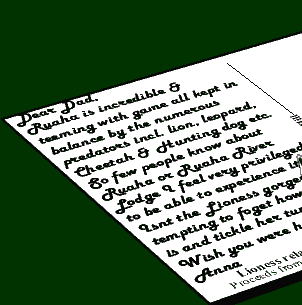 Dear Dad,
Ruaha is incredible &
teeming with game all kept in
balance by the numerous
predators incl. lion, leopard,
Cheetah & Hunting dog etc.
So few people know about
Ruaha or Ruaha River
Lodge I feel very privileged
to be able to experience i
Isnt the Lioness gorge
tempting to foget how
is and tickle her tum
Wish you were h
Anna
Lioness rela
Proceeds from